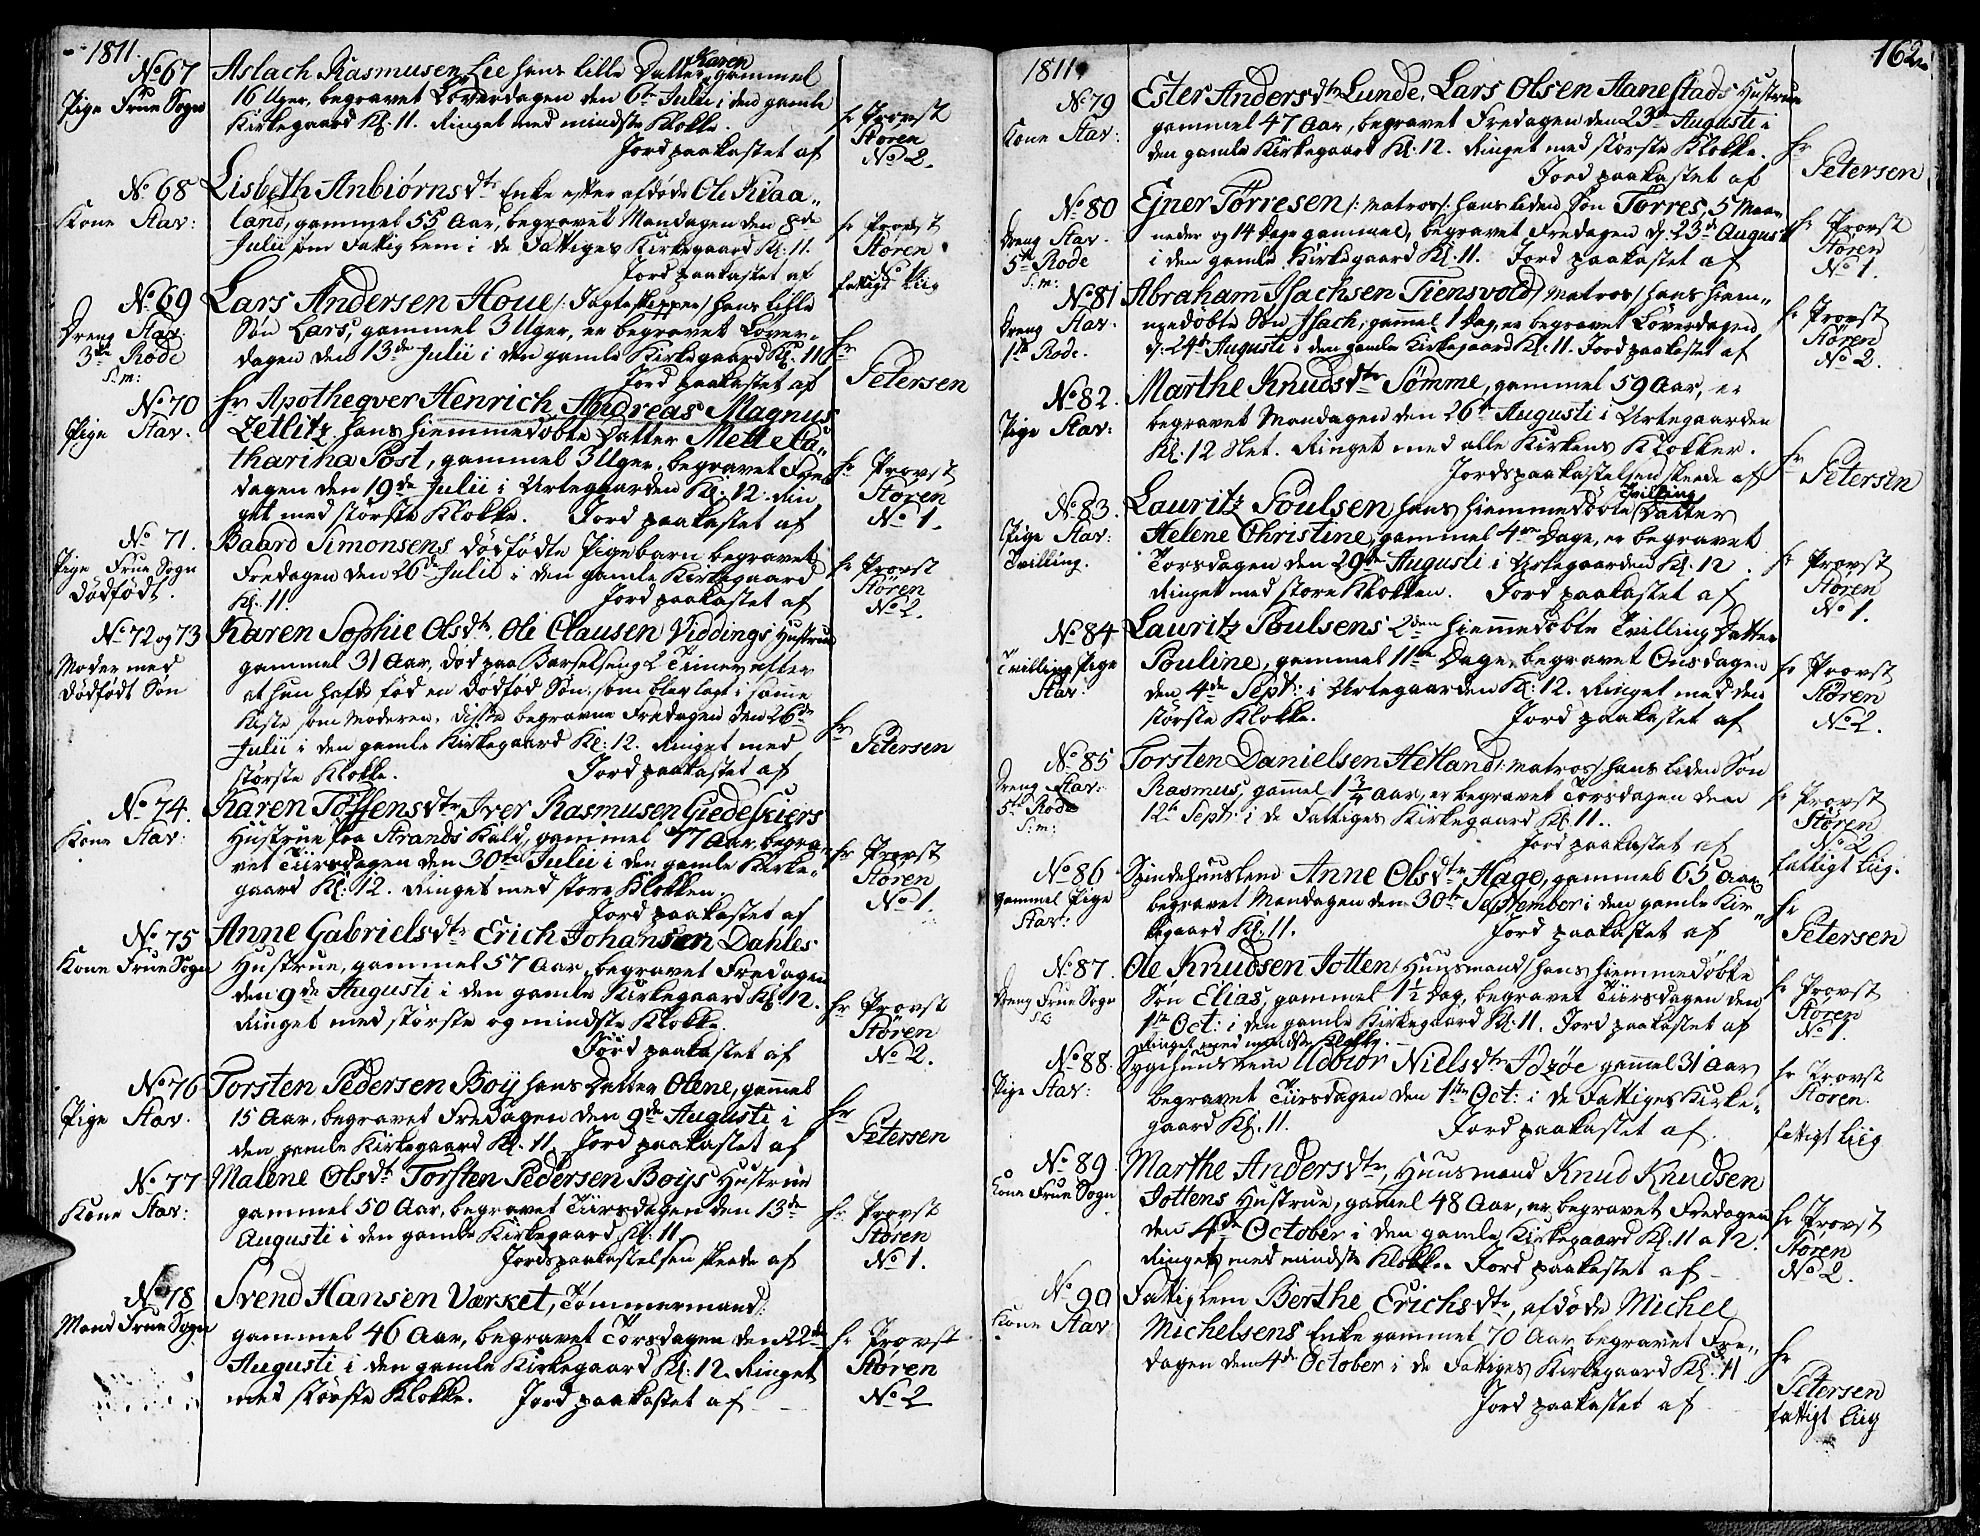 1811.
No 67
Pige Frue Sogn
Aslach Rasmusen Lie hans lille Datter Karen gammel
16 Uger, begravet Løverdagen den 6te Julii i den gamle
Kirkegaard Kl: 11. Ringet med mindste Klokke.
Jord paakastet af
hr Provst
Støren
No 2.
No 68
Kone Stav:
Lisbeth Anbiørnsdtr Enke efter afdøde Ole Kvaa-
land, gammel 55 Aar, begravet Mandagen den 8de
Julii som Fattiglem i de Fattiges Kirkegaard Kl. 11.
Jord paakastet af
hr Provst
Støren
fattigt Liig
No 69
Dreng Stav:
3die Rode
S: m:
Lars Andersen Houe /: Jagteskipper / hans lille
Søn Lars, gammel 3 Uger, er begravet Løver-
dagen den 13de Julii i den gamle Kirkegaard Kl. 11
Jord paakastet af
hr
Petersen
No 70
Pige Stav.
hr Apotheqver Henrich Andreas Magnus
Zetlitz hans hiemmedøbte Datter Mette Ca-
tharina Post, gammel 3 Uger, begravet Fre-
dagen den 19de Julii i Urtegaarden Kl: 12. Rin
get med største Klokke. Jord paakastet af
hr Provst
Støren
No 1.
No 71.
Pige Frue Sogn
dødfødt.
Baard Simonsens dødfødte Pigebarn begravet
Fredagen den 26de Julii i den gamle Kirkegaard
Kl. 11. Jord paakastet af
hr Provst
Støren
No 2.
No 72 og 73
Moder med
dødfødt Søn
Karen Sophie Olsdtr Ole Clausen Viddings Hustrue
gammel 31 Aar, død paa Barselseng 2 Timer efter
at hun hafde fød en dødfød Søn, som blev lagt i samme
Kiste som Moderen, disse begravne Fredagen den 26de
Julii i den gamle Kirkegaard Kl: 12. Ringet med
største Klokke. Jord paakastet af
hr
Petersen
No 74.
Kone Stav:
Karen Tøffensdtr Iver Rasmusen Giedeskiers
Hustrue fra Strands Kald, gammel 77 Aar, begra-
vet Tiirsdagen den 30te Julii i den gamle Kirke-
gaard Kl: 12. Ringet med store Klokken.
Jord paakastet af
hr Provst
Støren
No 1
No 75
Kone Frue Sogn
Anne Gabrielsdtr Erich Johansen Dahles
Hustrue, gammel 57 Aar, begravet Fredagen
den 9de Augusti i den gamle Kirkegaard Kl: 12.
Ringet med største og mindste Klokke.
Jord paakastet af
hr Provst
Støren
No 2.
No 76
Pige Stav.
Torsten Pedersen Boij hans Datter Olene, gamel
15 Aar, begravet Fredagen den 9de Augusti i
den gamle Kirkegaard Kl. 11. Jord paakastet af
hr
Petersen
No 77
Kone Stav:
Malene Olsdtr Torsten Pedersen Boijs Hustrue
gammel 50 Aar, begravet Tiirsdagen den 13de
Augusti i den gamle Kirkegaard Kl. 11.
Jordspaakastelsen skeede af
hr Provst
Støren
No 1.
No 78
Mand Frue Sogn
Svend Hansen Værket, Tømmermand:
gammel 46 Aar, begravet Torsdagen den 22de
Augusti i den gamle Kirkegaard Kl: 12. Ringet
med største Klokke. Jord paakastet af
hr Provst
Støren
No 2
1811.
162
No 79
Kone Stav:
Ester Andersdtr Lunde, Lars Olsen Aanestads Hustrue
gammel 47 Aar, begravet Fredagen den 23de Augusti i
den gamle Kirkegaard Kl. 12. Ringet med største Klokke.
Jord paakastet af
hr
Petersen
No 80
Dreng Stav.
5te Rode
S: m:
Ejner Torresen /: Matros / hans liden Søn Torres, 5 Maa-
neder og 14 Dage gammel, begravet Fredagen d. 23de August
i den gamle Kirkegaard Kl. 11. Jord paakastet af
hr Provst
Støren
No 1.
No 81
Dreng Stav.
1te Rode.
Abraham Isachsen Tiensvold / Matros / hans hiem-
medøbte Søn Isach, gamel 1 Dag, er begravet Løverdagen
d. 24de Augusti i den gamle Kirkegaard Kl. 11. Jord paakastet af
hr Provst
Støren
No 2.
No 82.
Pige Stav:
Marthe Knudsdtr Sømme, gammel 59 Aar, er
begravet Mandagen den 26de Augusti i Urtegaarden
Kl: 12 Slet. Ringet med alle Kirkens Klokker.
Jordspaakastelsen skeede af
hr
Petersen
No 83.
Pige Stav:
Tvilling.
Lauritz Poulsen hans hiemmedøbte Tvilling Datter
Helene Christine, gammel 4re Dage, er begravet
Torsdagen den 29de Augusti i Urtegaarden Kl. 12.
Ringet med store Klokken. Jord paakastet af
hr Provst
Støren
No 1.
No 84
Tvilling Pige
Stav:
Lauritz Poulsens 2den hiemmedøbte Tvilling Datter
Pouline, gammel 11ve Dage, begravet Onsdagen
den 4de Sept: i Urtegaarden Kl: 12. Ringet med den
største Klokke. Jord paakastet af
hr Provst
Støren
No 2.
No 85
Dreng Stav:
5te Rode
S: m:
Torsten Danielsen Hetland /: Matros / hans liden Søn
Rasmus, gamel 1 3/4 Aar, er begravet Torsdagen den
12te Sept: i de Fattiges Kirkegaard Kl. 11.
Jord paakastet af
hr Provst
Støren
No 2
fattigt Liig.
No 86
gammel Pige
Stav:
Spindehuuslem Anne Olsdtr Hage, gammel 65 Aar,
begravet Mandagen den 30te September i den gamle Kir-
kegaard Kl. 11. Jord paakastet af
hr
Petersen
No 87.
Dreng Frue Sogn
Ole Knudsen Jotten / Huusmand / hans hiemmedøbte
Søn Elias, gammel 1 1/2 Dag, begravet Tiirsdagen den
1te Oct: i den gamle Kirkegaard Kl. 11. Jord paakastet af
Ringet med mindste Klokke.
hr Provst
Støren
No 1.
No 88.
Pige Stav:
Sygehuuslem Udbiør Nielsdtr Idzøe gamel 31 Aar
begravet Tiirsdagen den 1te Oct: i de Fattiges Kirke-
gaard Kl. 11. Jord paakastet af
hr Provst
Støren.
fattigt Liig
No 89
Kone Frue Sogn
Marthe Andersdtr, Huusmand Knud Knudsen
Jottens Hustrue, gamel 48 Aar, er begravet Fredagen
den 4de October i den gamle Kirkegaard Kl. 11 a 12.
Ringet med mindste Klokke. Jord paakastet af
hr Provst
Støren
No 2.
No 90
Kone Stav:
Fattiglem Berthe Erichsdtr, afdøde Michel
Michelsens Enke gammel 70 Aar, begravet Fre-
dagen den 4de October i de Fattiges Kirkegaard Kl. 11
Jord paakastet af
hr
Petersen
fattigt Liig